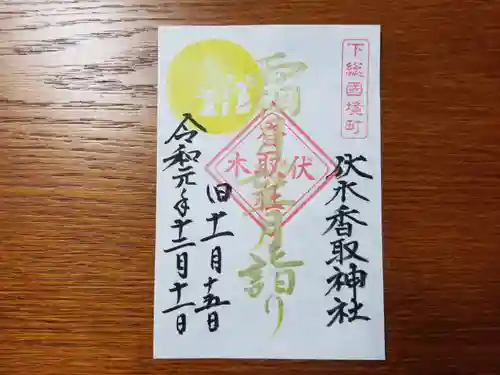 下総國境町
伏木香取神社
伏木香取社
霜
月詣り
旧十一月十五日
令和元年十二月十一日